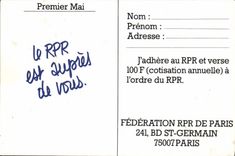 Premier Mai
le RPR
est auprès
de vous.
Nom :
Prénom :
Adresse :
J'adhère au RPR et verse
100 F (cotisation annuelle) à
l'ordre du RPR.
FÉDÉRATION RPR DE PARIS
241, BD ST-GERMAIN
75007 PARIS